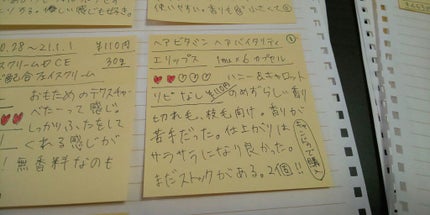 使いやすい。香りも
0.28～21.1.1 ¥110円
スクリームD CE 30g
配合アイスクリーム
おもためのテクスチャ
べたーって感じ
しっかりふたをして
くれる感じが
！無香料なのも
ヘアビタミン ヘアバイタリティ ①
エリップス 1ml×6カプセル
ハニー&キャロット
リピなし ¥110円 のめずらしい香り
切れ毛、枝毛向け。香りが
苦手だった。仕上がりは
サラサラになり良かった。
まだストックがある。2個!!
で購入